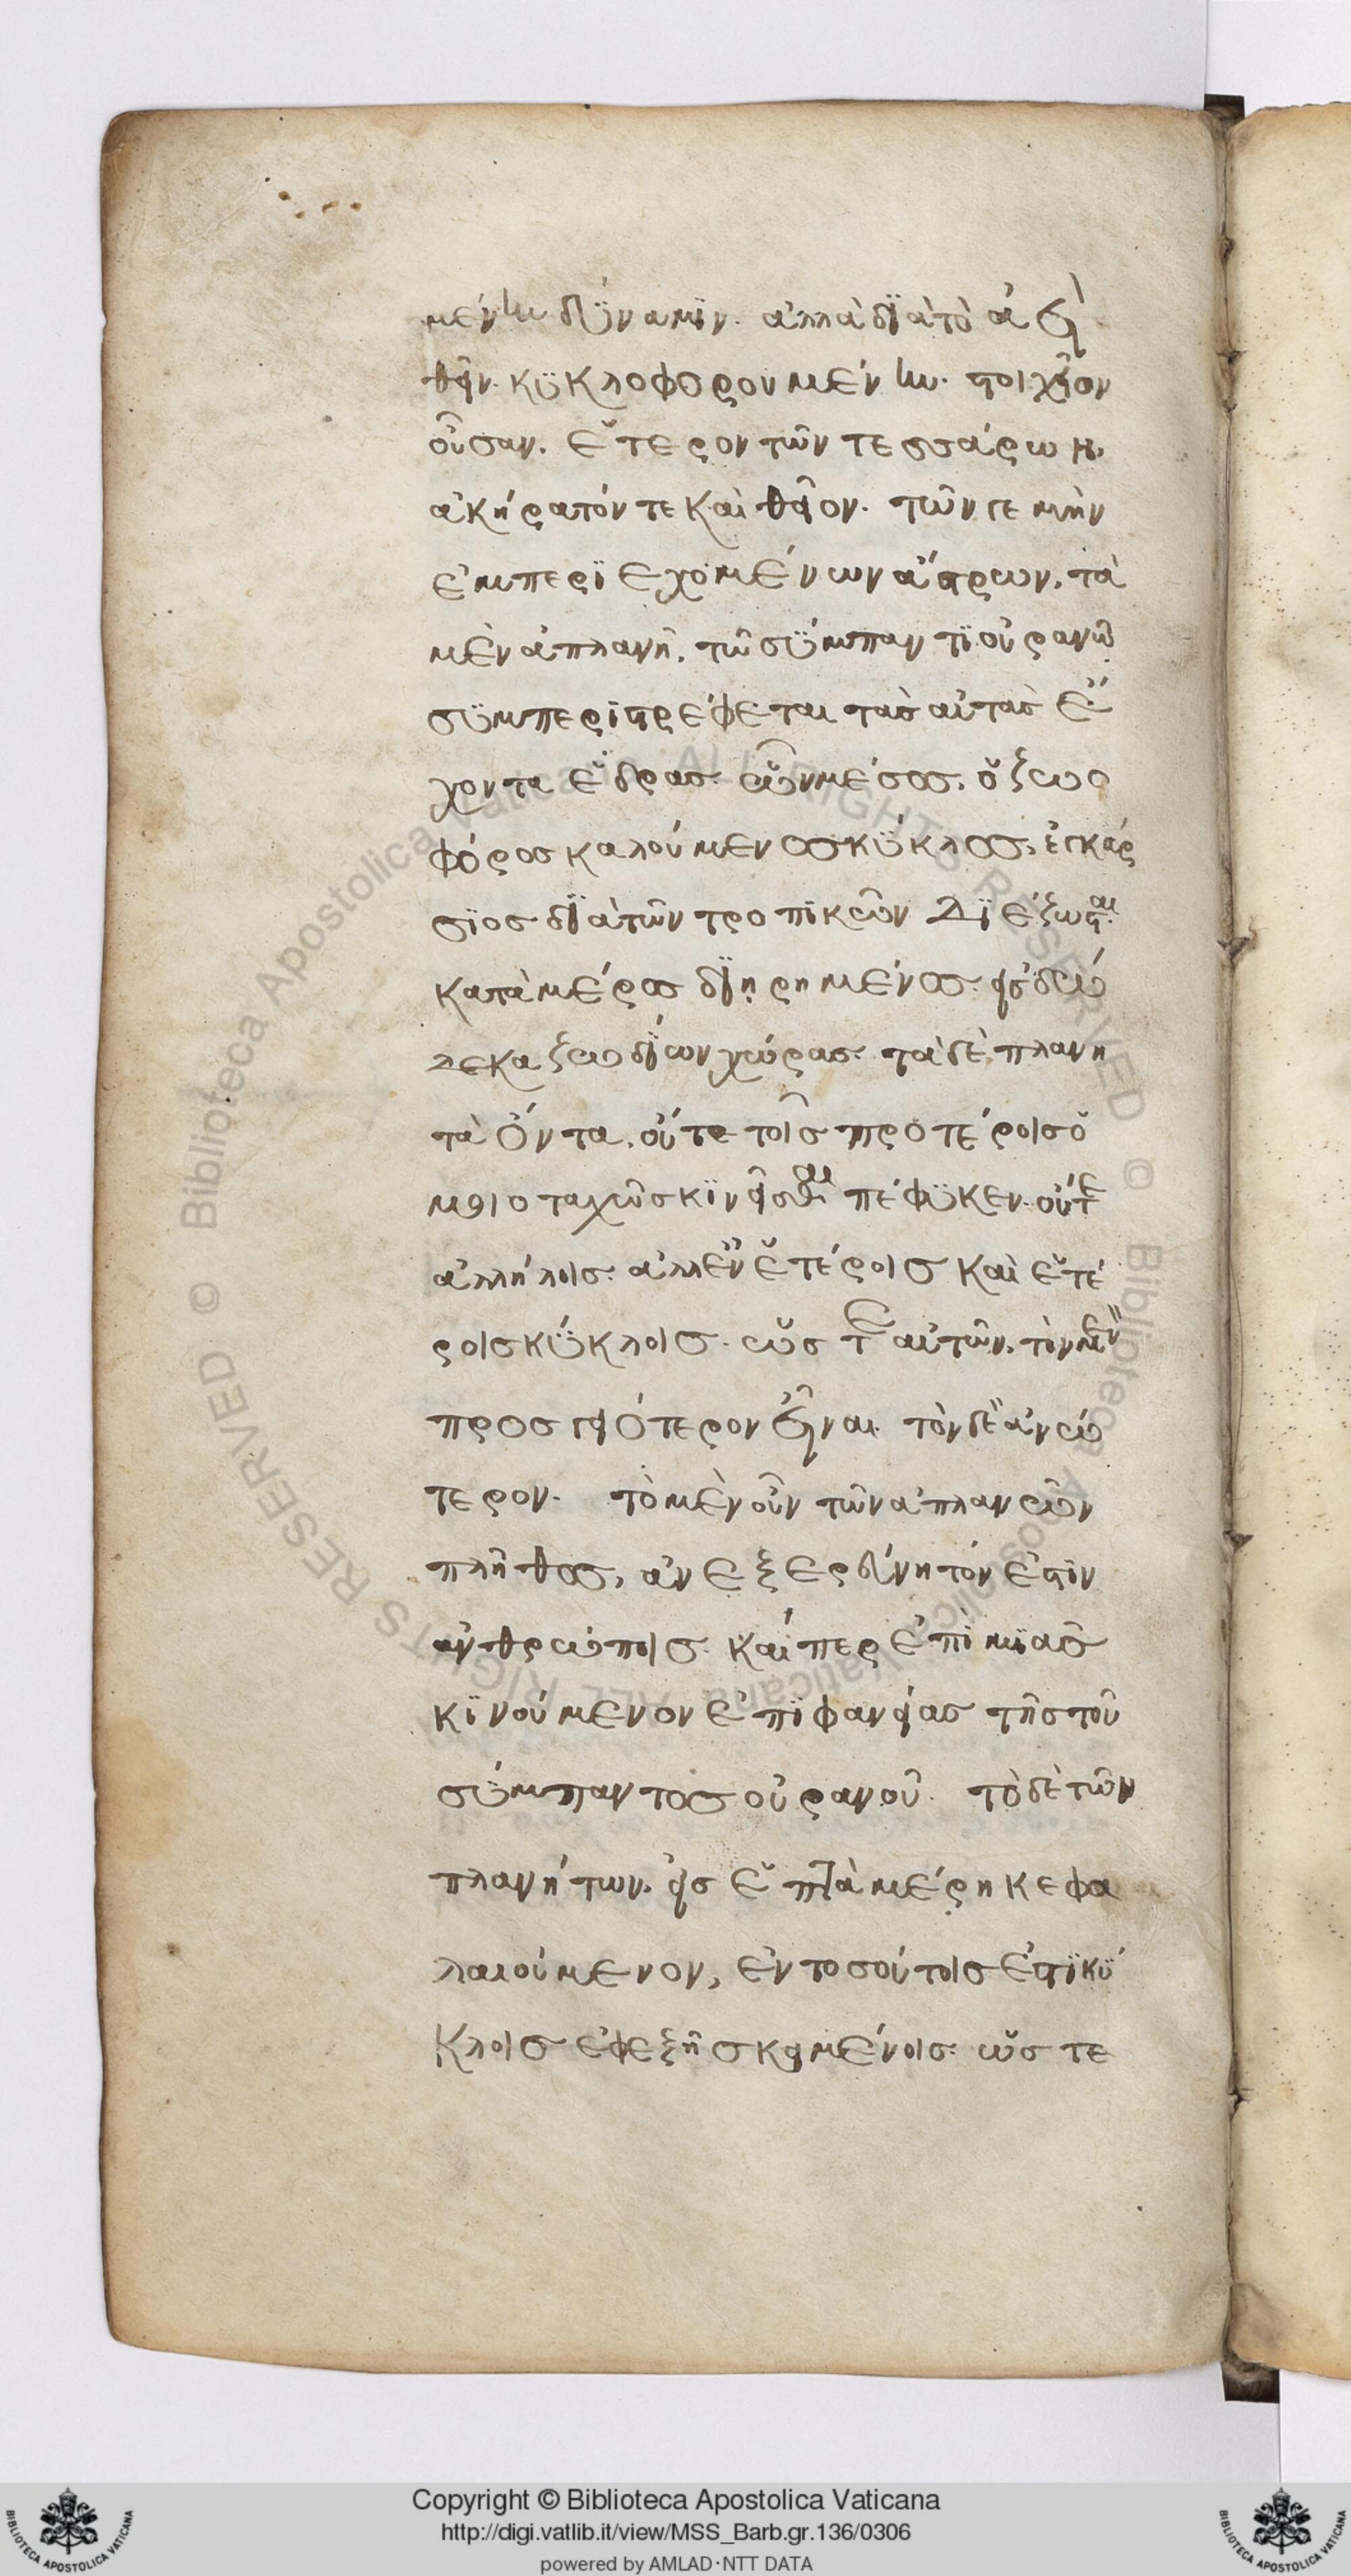 μένην δύναμϊν. ἀλλὰ δϊὰ τὸ ἀεὶ
θεῖν κϋκλοφορουμένην. στοιχεῖον
οὖσαν. ἕτερον τῶν τεσσάρων,
ἀκήρατόν τε καὶ θεῖον. τῶν γε μὴν
ἐμπερϊεχομένων ἄστρων, τὰ
μὲν ἀπλανῆ, τῶ σΰμπαντϊ οὐρανῶ
σϋμπερϊστρέφεται τὰς αὐτὰς ἔ
χοντα ἕδρας. ὧν μέσος, ὁ ζωο
φόρος καλούμενος κΰκλος, ἐγκάρ
σϊος δϊὰ τῶν τροπϊκῶν δϊέζωσται.
κατὰ μέρος δϊῃρημένος εἰς δώ
δεκα ζωδΐων χώρας. τὰ δὲ, πλανη
τὰ ὄντα, οὔτε τοῖς προτέροις ὁ
μοιοταχῶς κϊνεῖσθαι πέφϋκεν. οὔτε
ἀλλήλοις. ἀλλ' ἐν ἑτέροις καὶ ἑτέ
ροις κΰκλοις. ὥστε αὐτῶν, τὸν μὲν
προσγειότερον εἶναι. τὸν δὲ ἀνώ
τερον. τὸ μὲν οὖν τῶν ἀπλανῶν
πλῆθος, ἀνεξερεύνητόν ἐστϊν
ἀνθρώποις. καίπερ ἐπὶ μϊᾶς
κϊνούμενον ἐπϊφανείας τῆς τοῦ
σΰμπαντος οὐρανοῦ. τὸ δὲ τῶν
πλανήτων, εἰς ἑπτὰ μέρη κεφα
λαιούμενον, ἐν τοσούτοις ἐστϊ κΰ
κλοις ἐφεξῆς κειμένοις. ὥστε
Copyright © Biblioteca Apostolica Vaticana
http://digi.vatlib.it/view/MSS_Barb.gr.136/0306
powered by AMLAD·NTT DATA